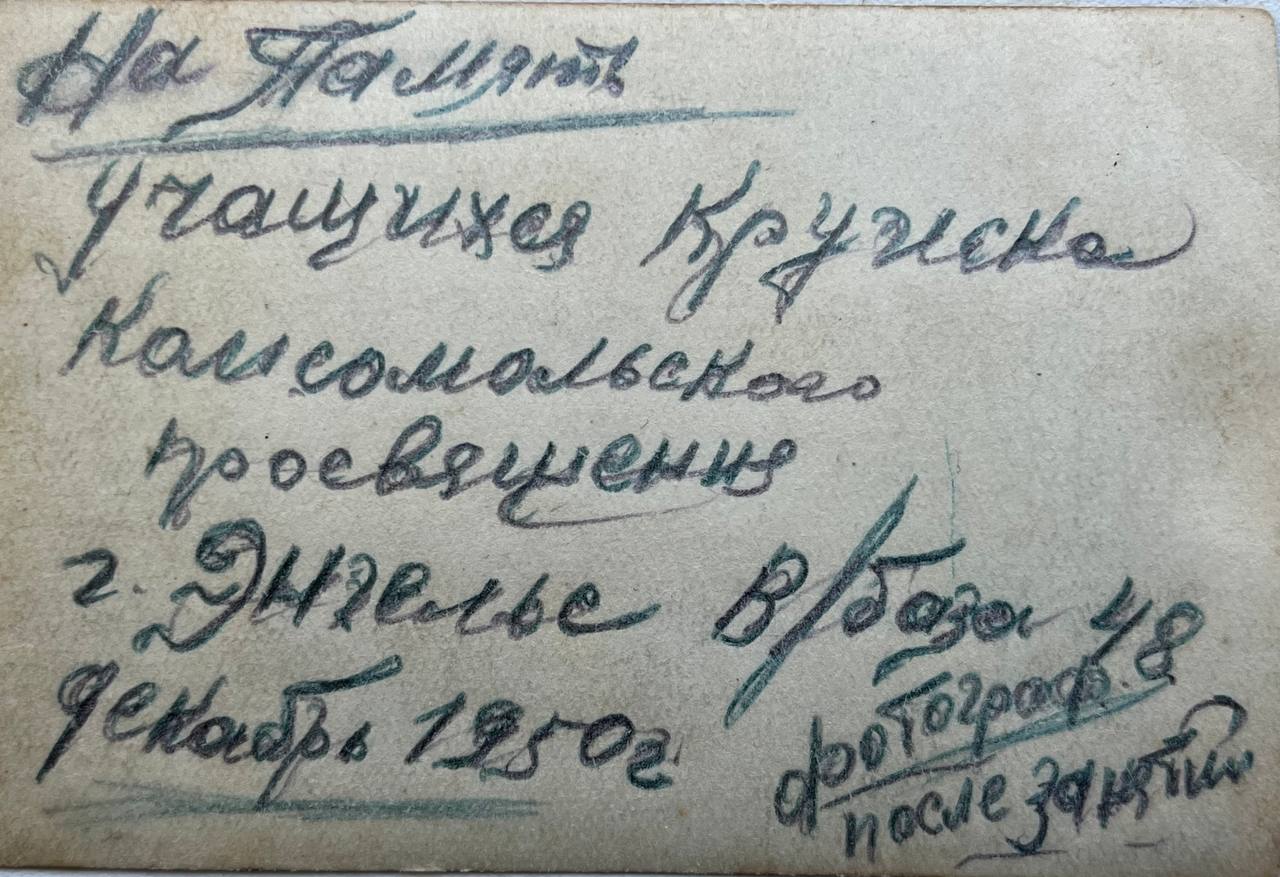 На Память
Учащихся Кружка
Комсомольского
просвящения
г. Энгельс В/база 48
декабрь 1950г
фотограф.
после занятий